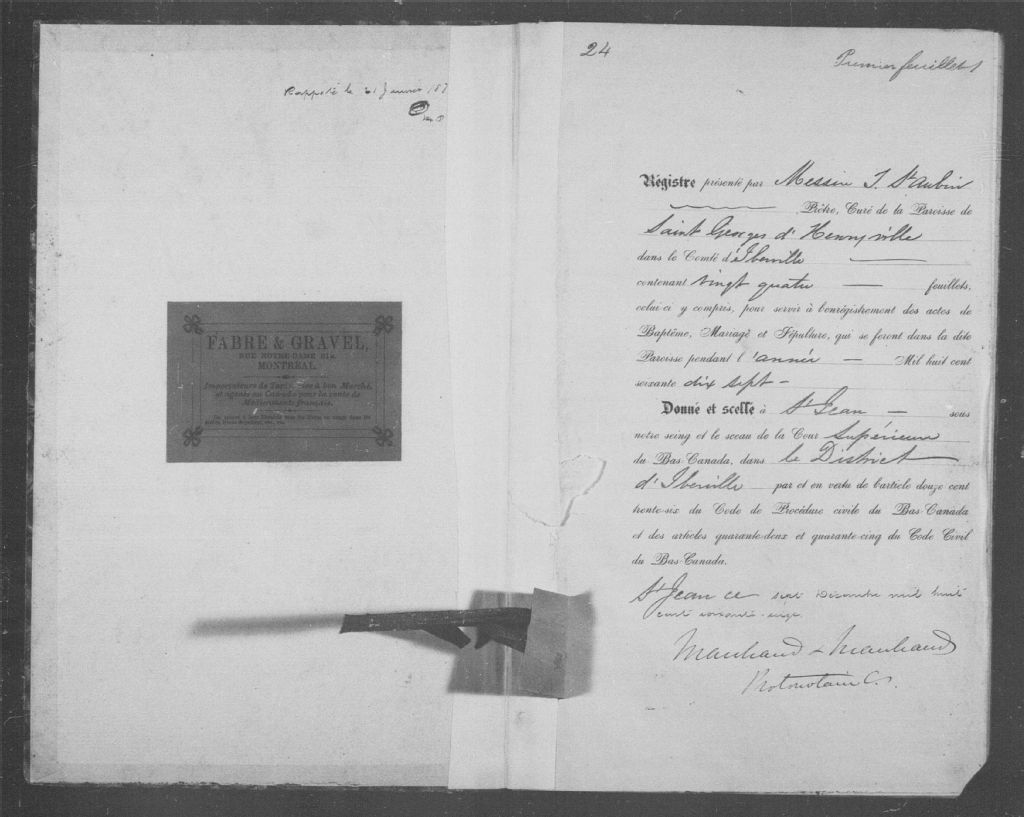 Rapporté le 21 Janvier 187
FABRE & GRAVEL,
RUE NOTRE-DAME 219.
MONTREAL.
Importateurs de à bon Marché,
et agents au Canada pour la vente de
Médicaments français.
24
Premier feuillet
Régistre présenté par Messire J. St Aubin
Prêtre, Curé de la Paroisse de
Saint Georges d'Henryville
dans le Comté d'Iberville
contenant vingt quatre — feuillets,
celui-ci y compris, pour servir à l'enrégistrement des actes de
Baptême, Mariage et Sépulture, qui se feront dans la dite
Paroisse pendant l'année — Mil huit cent
soixante dix sept —
Donné et scellé à St Jean — sous
notre seing et le sceau de la Cour Supérieure
du Bas-Canada, dans le District
d'Iberville par et en vertu de l'article douze cent
trente-six du Code de Procédure civile du Bas-Canada
et des articles quarante-deux et quarante-cinq du Code Civil
du Bas-Canada.
St Jean ce sept Décembre mil huit
cent soixante-seize
Marchand & Marchand
Protonotaire C. S.